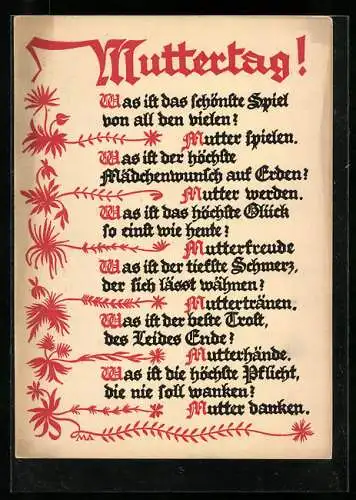 Muttertag!
Was ist das schönste Spiel
von all den vielen?
Mutter spielen.
Was ist der höchste
Mädchenwunsch auf Erden?
Mutter werden.
Was ist das höchste Glück
so einst wie heute?
Mutterfreude
Was ist der tiefste Schmerz,
der sich lässt wähnen?
Muttertränen.
Was ist der beste Trost,
des Leides Ende?
Mutterhände.
Was ist die höchste Pflicht,
die nie soll wanken?
Mutter danken.
MA